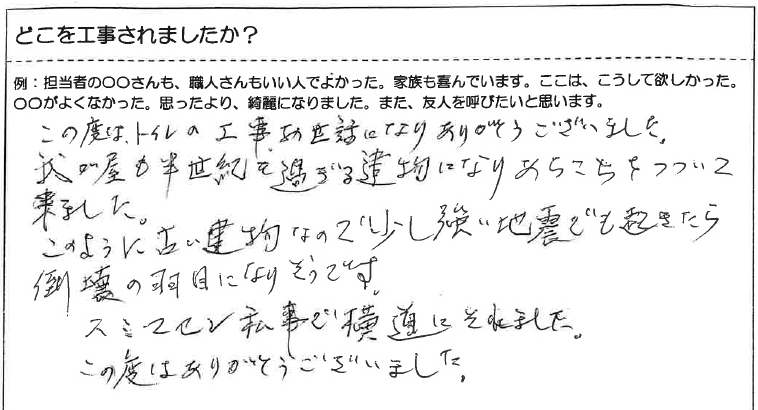 どこを工事されましたか？
例：担当者の〇〇さんも、職人さんもいい人でよかった。家族も喜んでいます。ここは、こうして欲しかった。
〇〇がよくなかった。思ったより、綺麗になりました。また、友人を呼びたいと思います。
この度は、トイレの工事お世話になりありがとうございました。
我が屋も半世紀を過ぎる建物になりあちこちをつついて
来ました。
このように古い建物なので少し強い地震でも起きたら
倒壊の羽目になりそうです。
スミマセン私事で横道にそれました。
この度はありがとうございました。